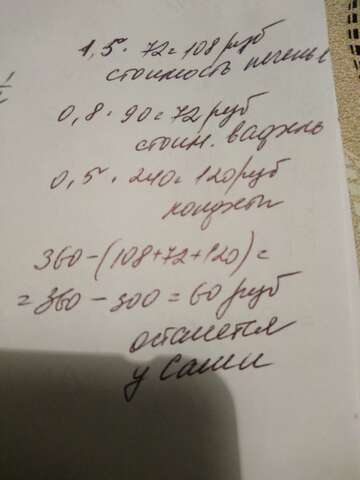 1,5 · 72 = 108 руб
стоимость печенья
0,8 · 90 = 72 руб
стоим. вафель
0,5 · 240 = 120 руб
конфеты
360 - (108 + 72 + 120) =
= 360 - 300 = 60 руб
останется
у Саши